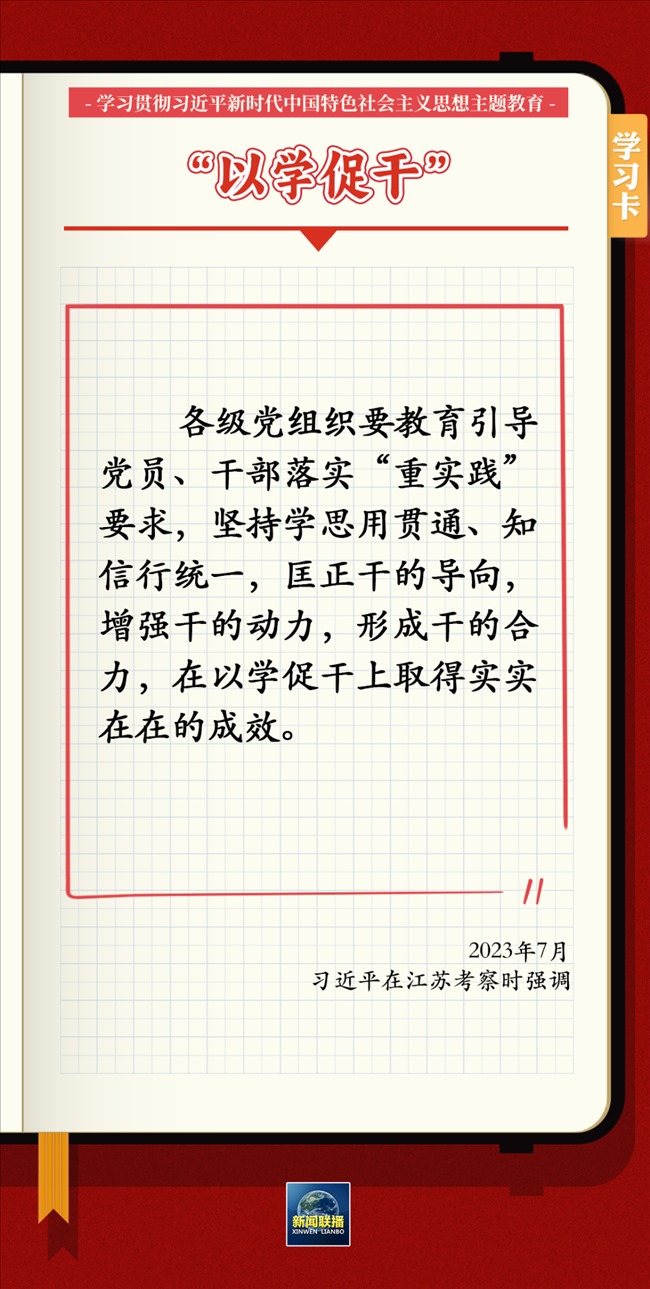 - 学习贯彻习近平新时代中国特色社会主义思想主题教育 -
“以学促干”
学习卡
各级党组织要教育引导
党员、干部落实“重实践”
要求，坚持学思用贯通、知
信行统一，匡正干的导向，
增强干的动力，形成干的合
力，在以学促干上取得实实
在在的成效。
2023年7月
习近平在江苏考察时强调
新闻联播
XINWEN LIANBO